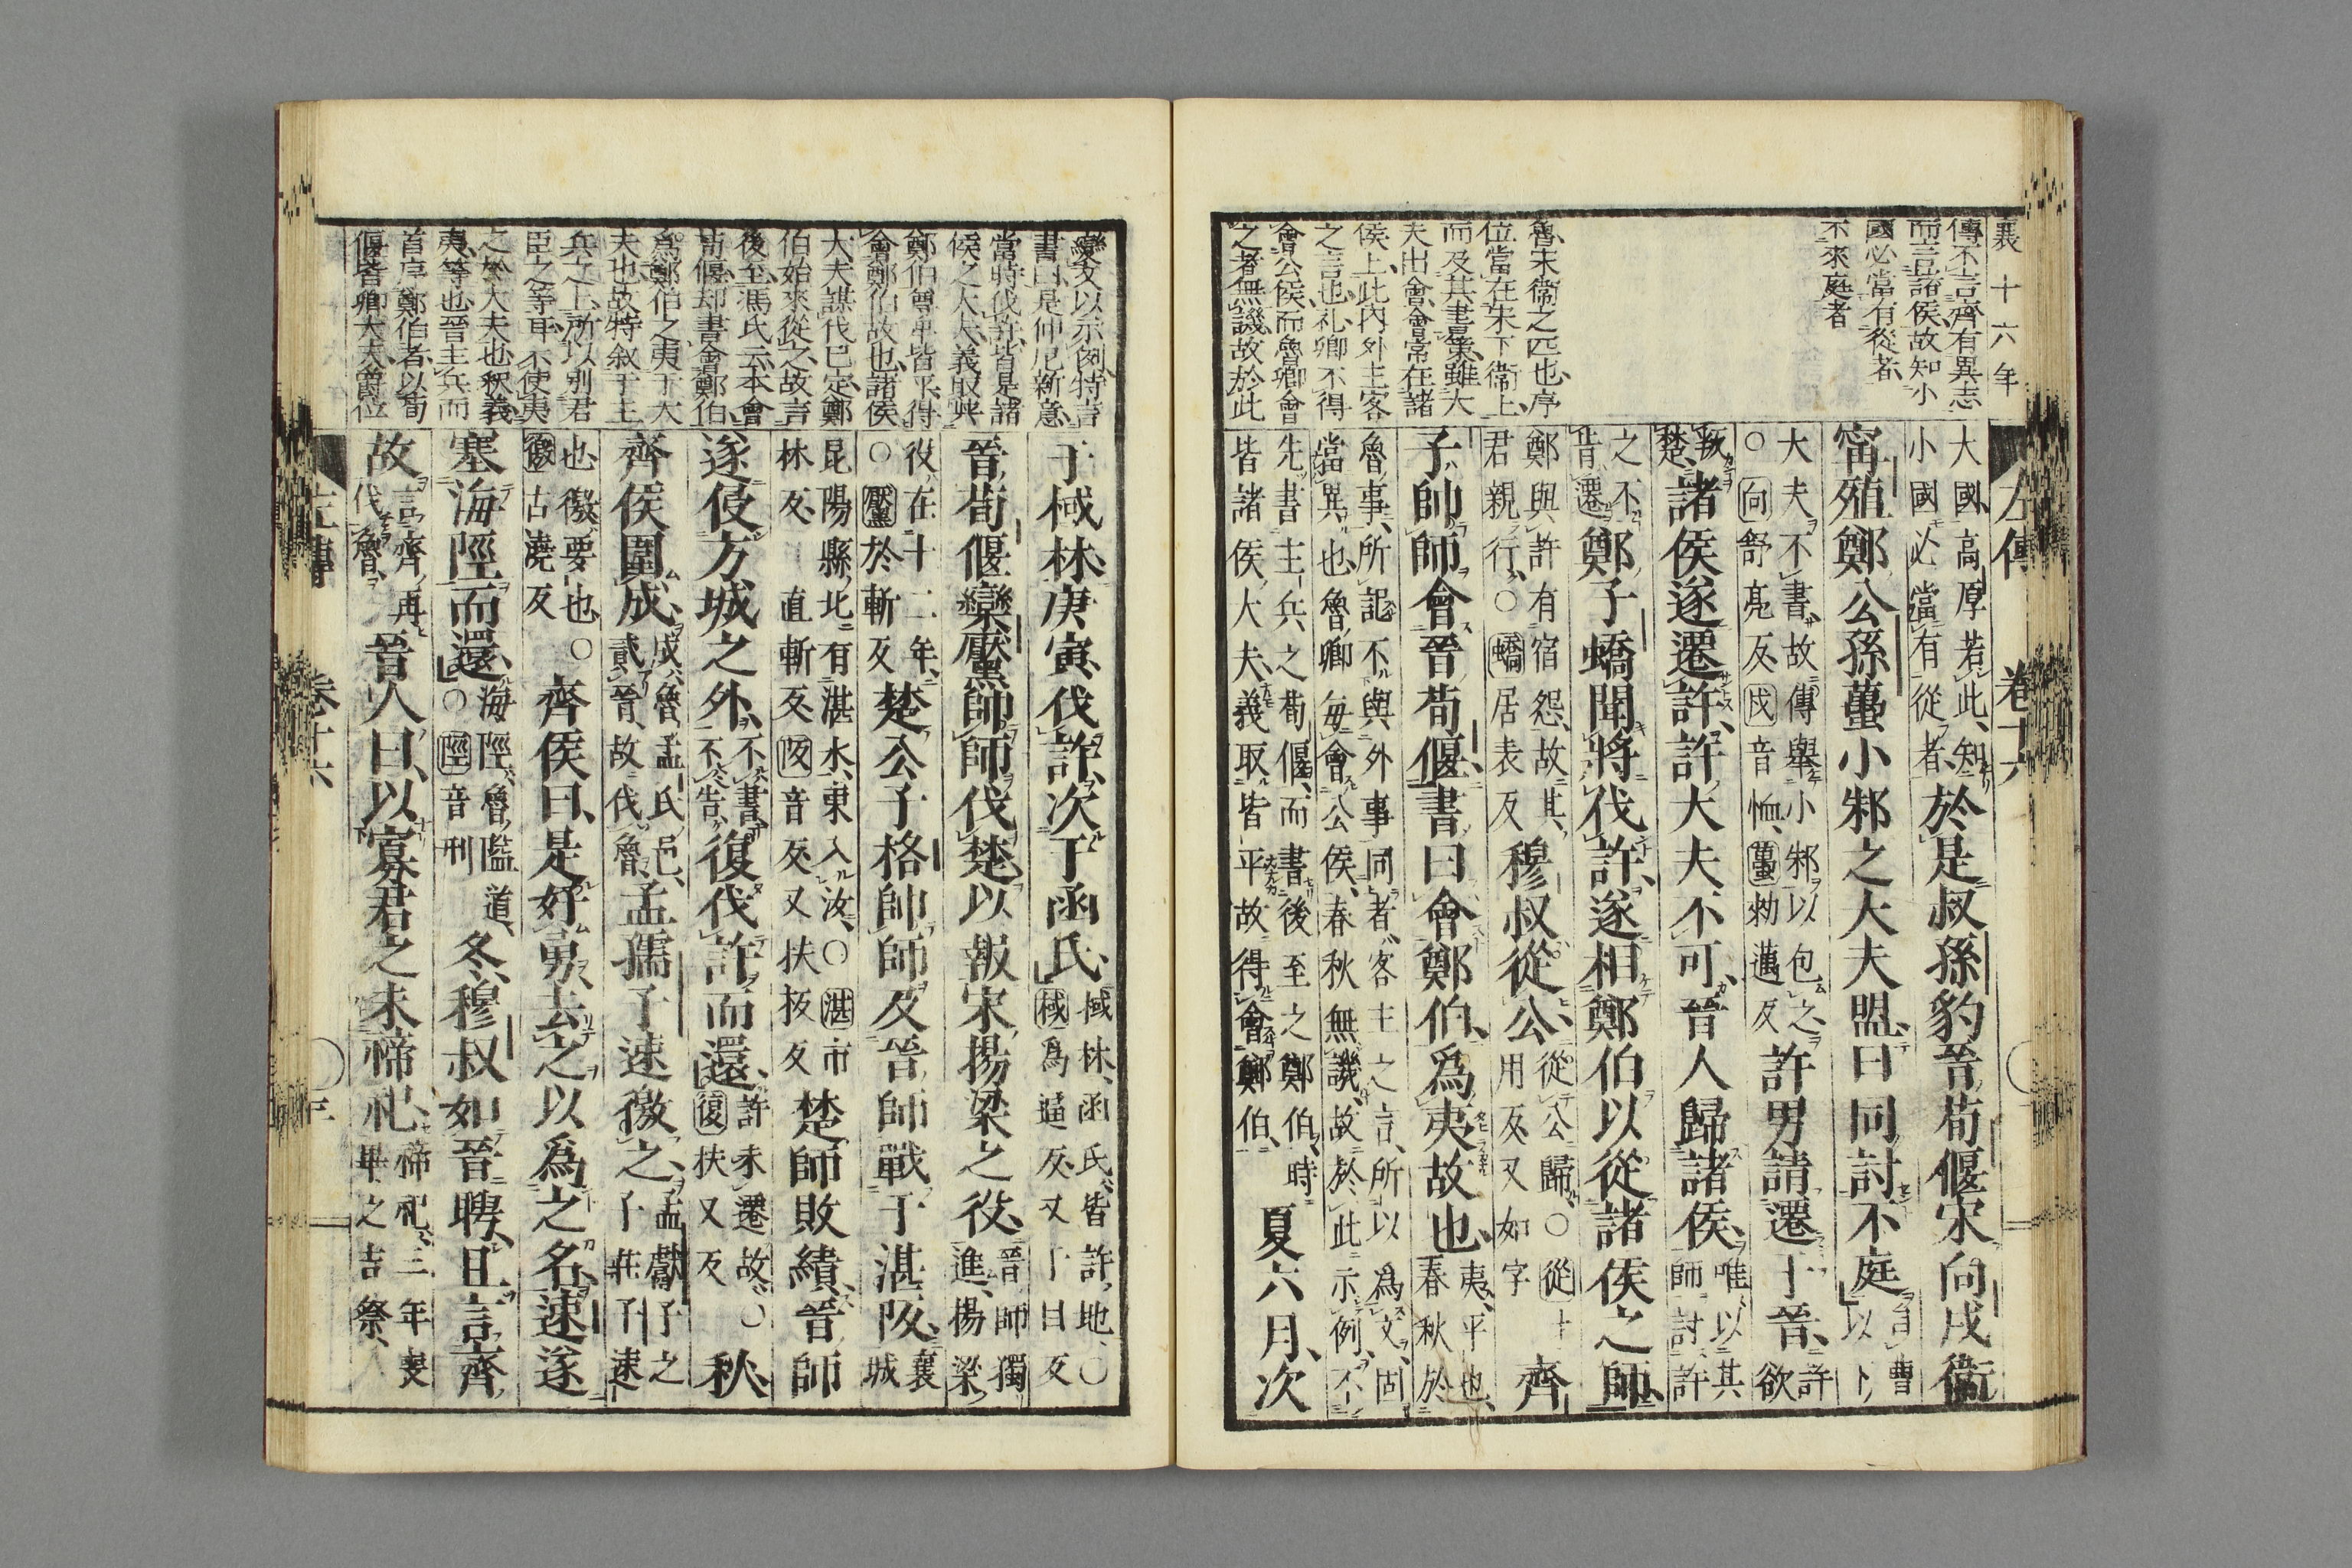 襄十六年
傳不言齊有異志
而言諸侯故知小
國必當有從者
不來庭者
魯宋衞之匹也序
位當在宋下衞上
而及其書
夫出會會常在諸
侯上此內外主客
之言也礼卿不得
會公侯而魯卿會
之者無譏故於此
左傳 卷十六
大國高厚若此知
小國必當有從者
於是叔孫豹晉荀偃宋向戌衞
甯殖鄭公孫蠆小邾之大夫盟曰同討不庭
自曹
以下
大夫不書故傳舉小邾以包之
○向舒亮反戌音恤蠆勑邁反
許男請遷于晉
許
欲
叛
楚
諸侯遂遷許許大夫不可晉人歸諸侯
唯以其
師討許
之不
肯遷
鄭子蟜聞將伐許遂相鄭伯以從諸侯之師
鄭與許有宿怨故其
君親行○蟜居表反
穆叔從公
從公歸○從才
用反又如字
齊
子帥師會晉荀偃書曰會鄭伯爲夷故也
夷平也
春秋於
魯事所記不與外事同者客主之言所以爲文固
當異也魯卿每會公侯春秋無譏故於此示例不
先書主兵之荀偃而書後至之鄭伯時
皆諸侯大夫義取皆平故得會鄭伯
夏六月次
變文以示例特言
書曰是仲尼新意
當時伐許皆是諸
侯之大夫義取與
鄭伯尊卑皆平得
會鄭伯故也諸侯
大夫謀伐已定鄭
伯始來從之故言
後至馮氏云本會
荀偃却書會鄭伯
爲鄭伯之夷于大
夫也故特叙于主
兵之上所以別君
臣之等耳不使夷
之於大夫也釈義
夷等也晉主兵而
首序鄭伯者以荀
偃皆卿大夫爵位
于棫林庚寅伐許次于函氏
棫林函氏皆許地○
棫爲逼反又丁曰反
晉荀偃欒黶帥師伐楚以報宋揚梁之役
晉師獨
進揚梁
役在十二年
○黶於斬反
楚公子格帥師及晉師戰于湛阪
襄
城
昆陽縣北有湛水東入汝○湛市
林反 直斬反阪音反又扶板反
楚師敗績晉師
遂侵方城之外
不書
不告
復伐許而還
許未遷故○
復扶又反
秋
齊侯圍成
成魯孟氏邑
貳晉故伐魯
孟孺子速徼之
孟獻子之
子莊子速
也徼要也○
徼古澆反
齊侯曰是好勇去之以爲之名速遂
塞海陘而還
海陘魯隘道
○陘音刑
冬穆叔如晉聘且言齊
故
言齊再
伐魯
晉人曰以寡君之未禘祀
禘祀三年喪
畢之吉祭
左傳 卷十六 三